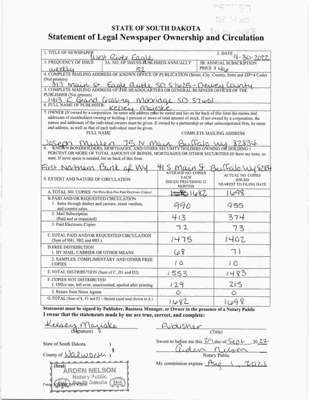 STATE OF SOUTH DAKOTA
Statement of Legal Newspaper Ownership and Circulation
1. TITLE OF NEWSPAPER
West River Eagle
2. DATE
9-30-2022
3. FREQUENCY OF ISSUE
weekly
3A. NO. OF ISSUES PUBLISHED ANNUALLY
52
3B. ANNUAL SUBSCRIPTION
PRICE $
4. COMPLETE MAILING ADDRESS OF KNOWN OFFICE OF PUBLICATION (Street, City, County, State and ZIP+4 Code)
(Not printers)
317 Main St Eagle Butte SD 57625 - Dewey County
5. COMPLETE MAILING ADDRESS OF THE HEADQUARTERS OR GENERAL BUSINESS OFFICES OF THE
PUBLISHER (Not printers)
1413 E Grand Crossing Mobridge SD 57601
6. FULL NAME OF PUBLISHER:
7. OWNER (If owned by a corporation, its name and address must be stated and also on the back of this form the names and
addresses of stockholders owning or holding 1 percent or more of total amount of stock. If not owned by a corporation, the
names and addresses of the individual owners must be given. If owned by a partnership or other unincorporated firm, its name
and address, as well as that of each individual must be given.
FULL NAME COMPLETE MAILING ADDRESS
Joseph 75 N Main Buffalo Wy 82834
8. KNOWN BONDHOLDERS, MORTGAGEES, AND OTHER SECURITY HOLDERS OWNING OR HOLDING 1
PERCENT OR MORE OF TOTAL AMOUNT OF BONDS, MORTGAGES OR OTHER SECURITIES (If there are none, so
state. If more space is needed, list on back of this form.
First Northern Bank of Wy 41 S Main St Buffalo Wy
9. EXTENT AND NATURE OF CIRCULATION
AVERAGE NO. COPIES
EACH
ISSUE DURING PRECEDING 12
MONTHS
ACTUAL NO. COPIES
ISSUED
NEAREST TO FILING DATE
A. TOTAL NO. COPIES 1682 1698
B. PAID AND/OR REQUESTED CIRCULATION
1. Sales through dealers and carriers, street vendors,
and counter sales. 990 955
2. Mail Subscription
(Paid and or requested) 413 374
3. Paid Electronic Copies 72 73
C. TOTAL PAID AND/OR REQUESTED CIRCULATION
(Sum of 9B1, 9B2 and 9B3.) 1475 1402
D. FREE DISTRIBUTION
1. BY MAIL, CARRIER OR OTHER MEANS 68 71
2. SAMPLES, COMPLIMENTARY AND OTHER FREE
COPIES 10 10
E. TOTAL DISTRIBUTION (Sum of C, D1 and D2) 1553 1483
F. COPIES NOT DISTRIBUTED
1. Office use, left over, unaccounted, spoiled after printing 129 215
2. Return from News Agents 0 0
G. TOTAL (Sum of E, F1 and F2 - Should equal total shown in A) 1682 1698
Statement must be signed by Publisher, Business Manager, or Owner in the presence of a Notary Public
I swear that the statements made by me are true, correct, and complete:
Publisher
(Signature) (Title)
State of South Dakota )
Sworn to before me this day of Sept, 2022
County of Walworth )
Arden Nelson
Notary Public
(Seal)
My commission expires: Aug 1,
ARDEN NELSON
Notary Public
South Dakota